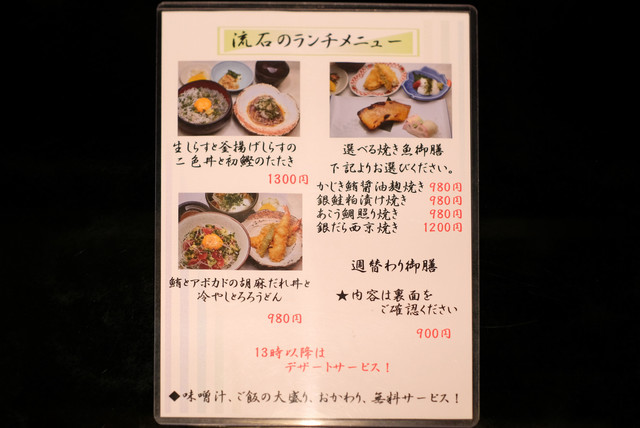 流石のランチメニュー
生しらすと釜揚げしらすの
二色丼と初鰹のたたき
1300円
鮪とアボカドの胡麻だれ丼と
冷やしとろろうどん
980円
選べる焼き魚御膳
下記よりお選びください。
かじき鮪醤油麹焼き 980円
銀鮭粕漬け焼き 980円
あこう鯛照り焼き 980円
銀だら西京焼き 1200円
週替わり御膳
★内容は裏面を
ご確認ください
900円
13時以降は
デザートサービス!
◆味噌汁、ご飯の大盛り、おかわり、無料サービス!